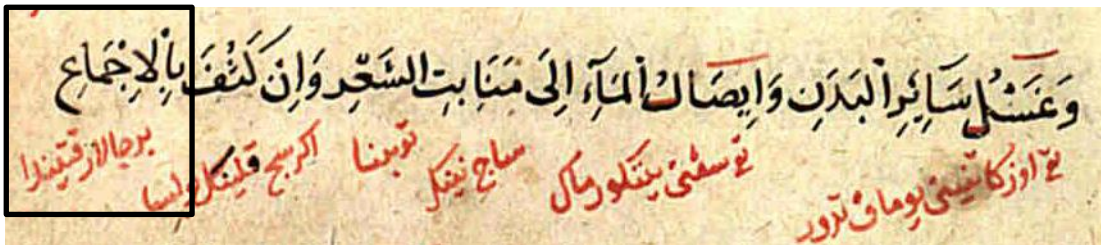 وَغَسْلُ سَائِرِ الْبَدَنِ وَاِيصَالُ الْمَآءِ اِلَى مَنَابِتِ الشَّعْرِ وَاِنْ كَثُفَ بِالْاِجْمَاعِ
اوزكا تنينى يوماق ترور سفنى يتكورماك ساج نينك توبينا قلينك بولسا برجالار قتيندا